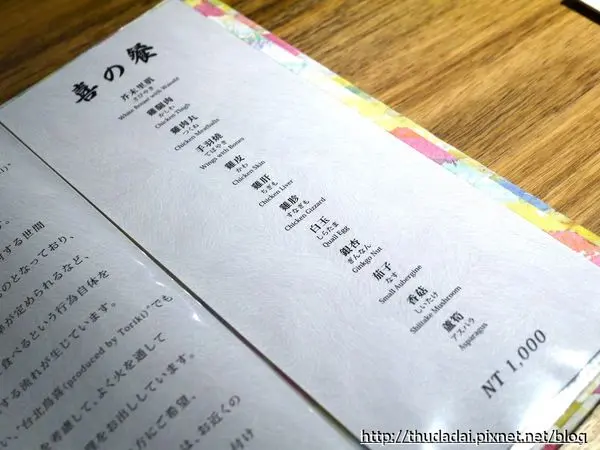 喜の餐
芥末里肌
さびやき
White Breast with Wasabi
雞腿肉
かしわ
Chicken Thigh
雞肉丸
つくね
Chicken Meatballs
手羽燒
てばやき
Wings with Bones
雞皮
かわ
Chicken Skin
雞肝
ちぎも
Chicken Liver
雞胗
すなぎも
Chicken Gizzard
白玉
しらたま
Quail Egg
銀杏
ぎんなん
Ginkgo Nut
茄子
なす
Small Aubergine
香菇
しいたけ
Shiitake Mushroom
蘆筍
アスパラ
Asparagus
NT 1,000
する世間
のとなっており、
が定められるなど、
食べるという行為自体を
する流れが生じています。
い、"台北鳥喜(produced by Toriki)"でも
を考慮して、よく火を通して
理をお出ししています。
方にご希望、
は、お近くの
付け
http://thudadai.pixnet.net/blog